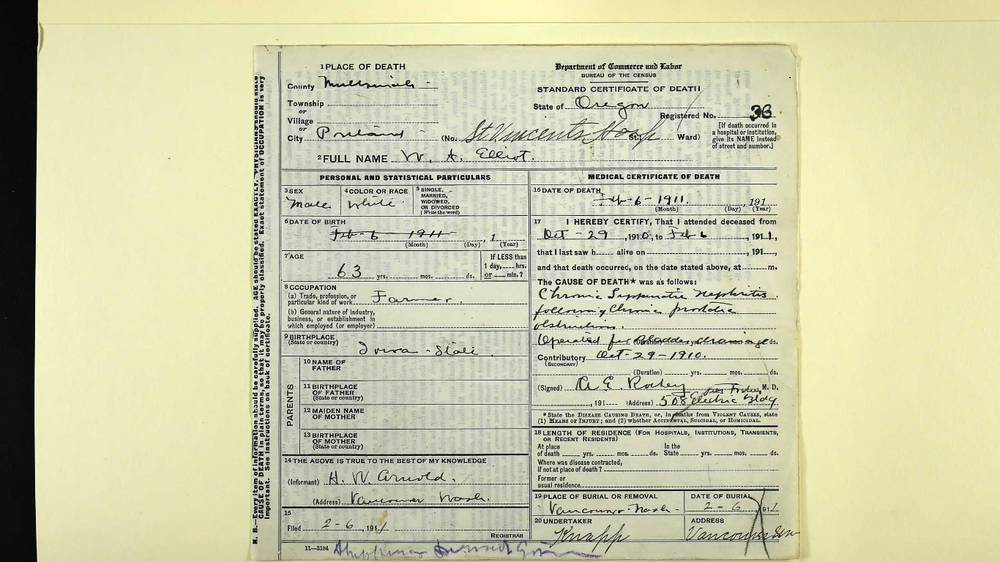 N. B.—Every item of information should be carefully supplied. AGE should be stated EXACTLY. PHYSICIANS should state
CAUSE OF DEATH in plain terms, so that it may be properly classified. Exact statement of OCCUPATION is very
important. See instructions on back of certificate.
1 PLACE OF DEATH
County Multnomah
Township
or
Village
or
City Portland (No. St Vincents Hosp St. Ward)
Department of Commerce and Labor
BUREAU OF THE CENSUS
STANDARD CERTIFICATE OF DEATH
State of Oregon
Registered No. 36
[If death occurred in
a hospital or institution,
give its NAME instead
of street and number.]
2 FULL NAME W. A. Elliot.
PERSONAL AND STATISTICAL PARTICULARS
3 SEX Male
4 COLOR OR RACE White
5 SINGLE,
MARRIED,
WIDOWED,
OR DIVORCED
(Write the word)
6 DATE OF BIRTH
Feb-6 1911 , 1
(Month) (Day) (Year)
7 AGE
63 yrs. mos. ds.
If LESS than
1 day, hrs.
or min.?
8 OCCUPATION
(a) Trade, profession, or
particular kind of work Farmer.
(b) General nature of industry,
business, or establishment in
which employed (or employer)
9 BIRTHPLACE
(State or country) Iowa-State
PARENTS
10 NAME OF
FATHER
11 BIRTHPLACE
OF FATHER
(State or country)
12 MAIDEN NAME
OF MOTHER
13 BIRTHPLACE
OF MOTHER
(State or country)
14 THE ABOVE IS TRUE TO THE BEST OF MY KNOWLEDGE
(Informant) H. W. Arnold.
(Address) Vancouver Wash.
15
Filed 2-6 , 1911
REGISTRAR
11—3184
MEDICAL CERTIFICATE OF DEATH
16 DATE OF DEATH
Feb-6-1911. , 191
(Month) (Day) (Year)
17 I HEREBY CERTIFY, That I attended deceased from
Oct-29 , 1910, to Feb 6 , 1911,
that I last saw h alive on , 191 ,
and that death occurred, on the date stated above, at m.
The CAUSE OF DEATH* was as follows:
Chronic nephritis
following Chronic prostatic
obstruction.
Operated for Bladder drainage ds.
Contributory Oct-29-1910.
(SECONDARY)
(Duration) yrs. mos. ds.
(Signed) , M. D.
, 191 (Address) 508 Electric Bldg
* State the DISEASE CAUSING DEATH, or, in deaths from VIOLENT CAUSES, state
(1) MEANS OF INJURY; and (2) whether ACCIDENTAL, SUICIDAL, or HOMICIDAL.
18 LENGTH OF RESIDENCE (FOR HOSPITALS, INSTITUTIONS, TRANSIENTS,
OR RECENT RESIDENTS)
At place In the
of death yrs. mos. ds. State yrs. mos. ds.
Where was disease contracted,
if not at place of death?
Former or
usual residence
19 PLACE OF BURIAL OR REMOVAL
Vancouver-Wash-
DATE OF BURIAL
2-6 , 1911
20 UNDERTAKER
Knapp
ADDRESS
Vancouver